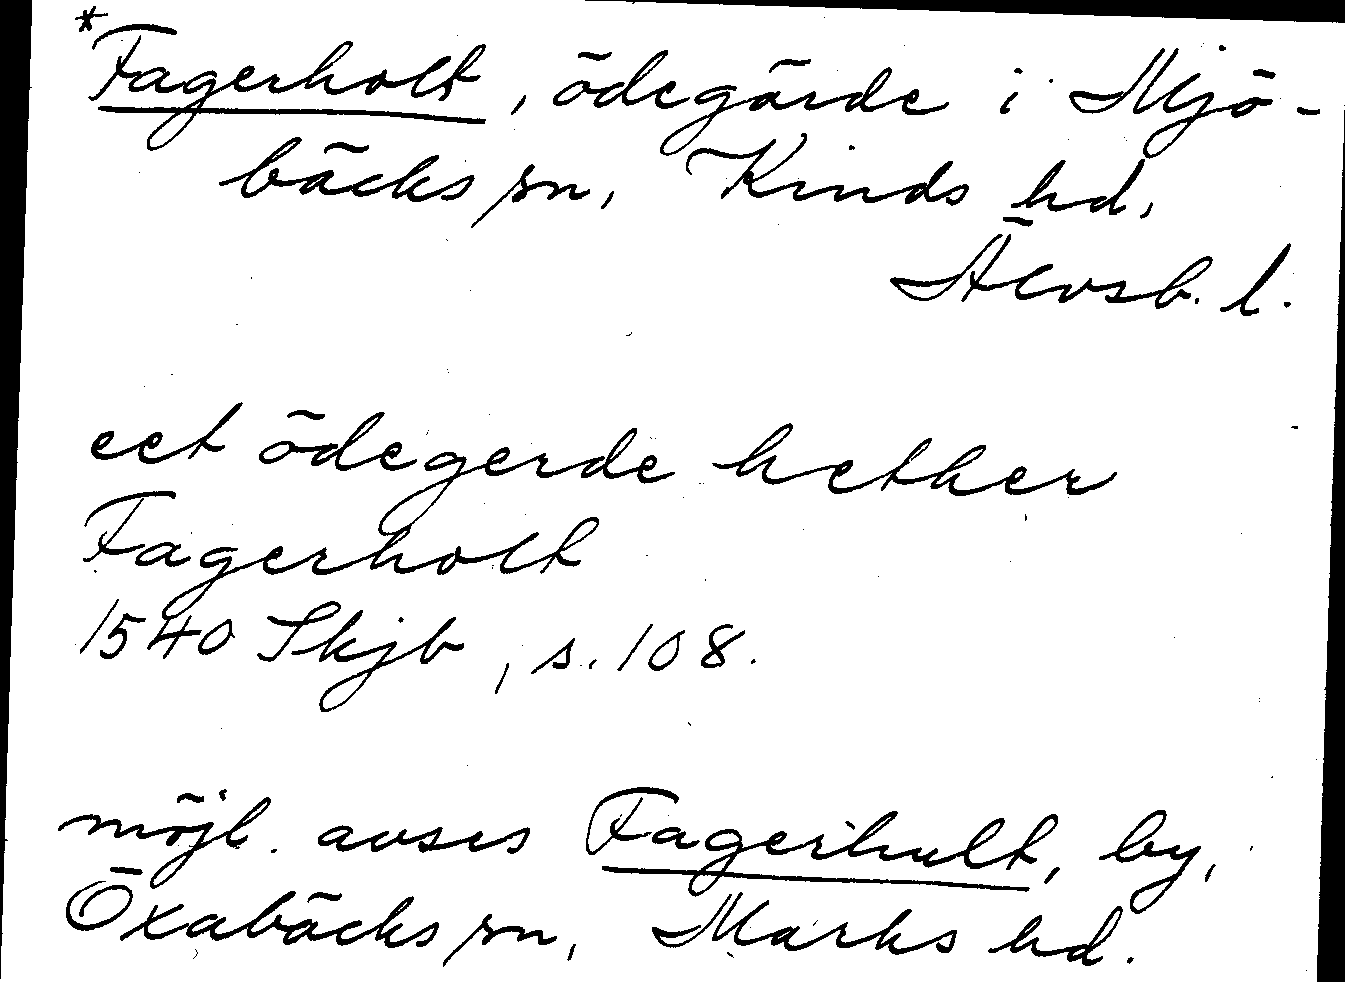 *Fagerholt, ödegärde i Mjö-
bäcks sn, Kinds hd,
Älvsb. l.
eet ödegerde hether
Fagerholt
1540 Skjb, s. 108.
möjl. avses Fagerhult, by,
Öxabäcks sn, Marks hd.